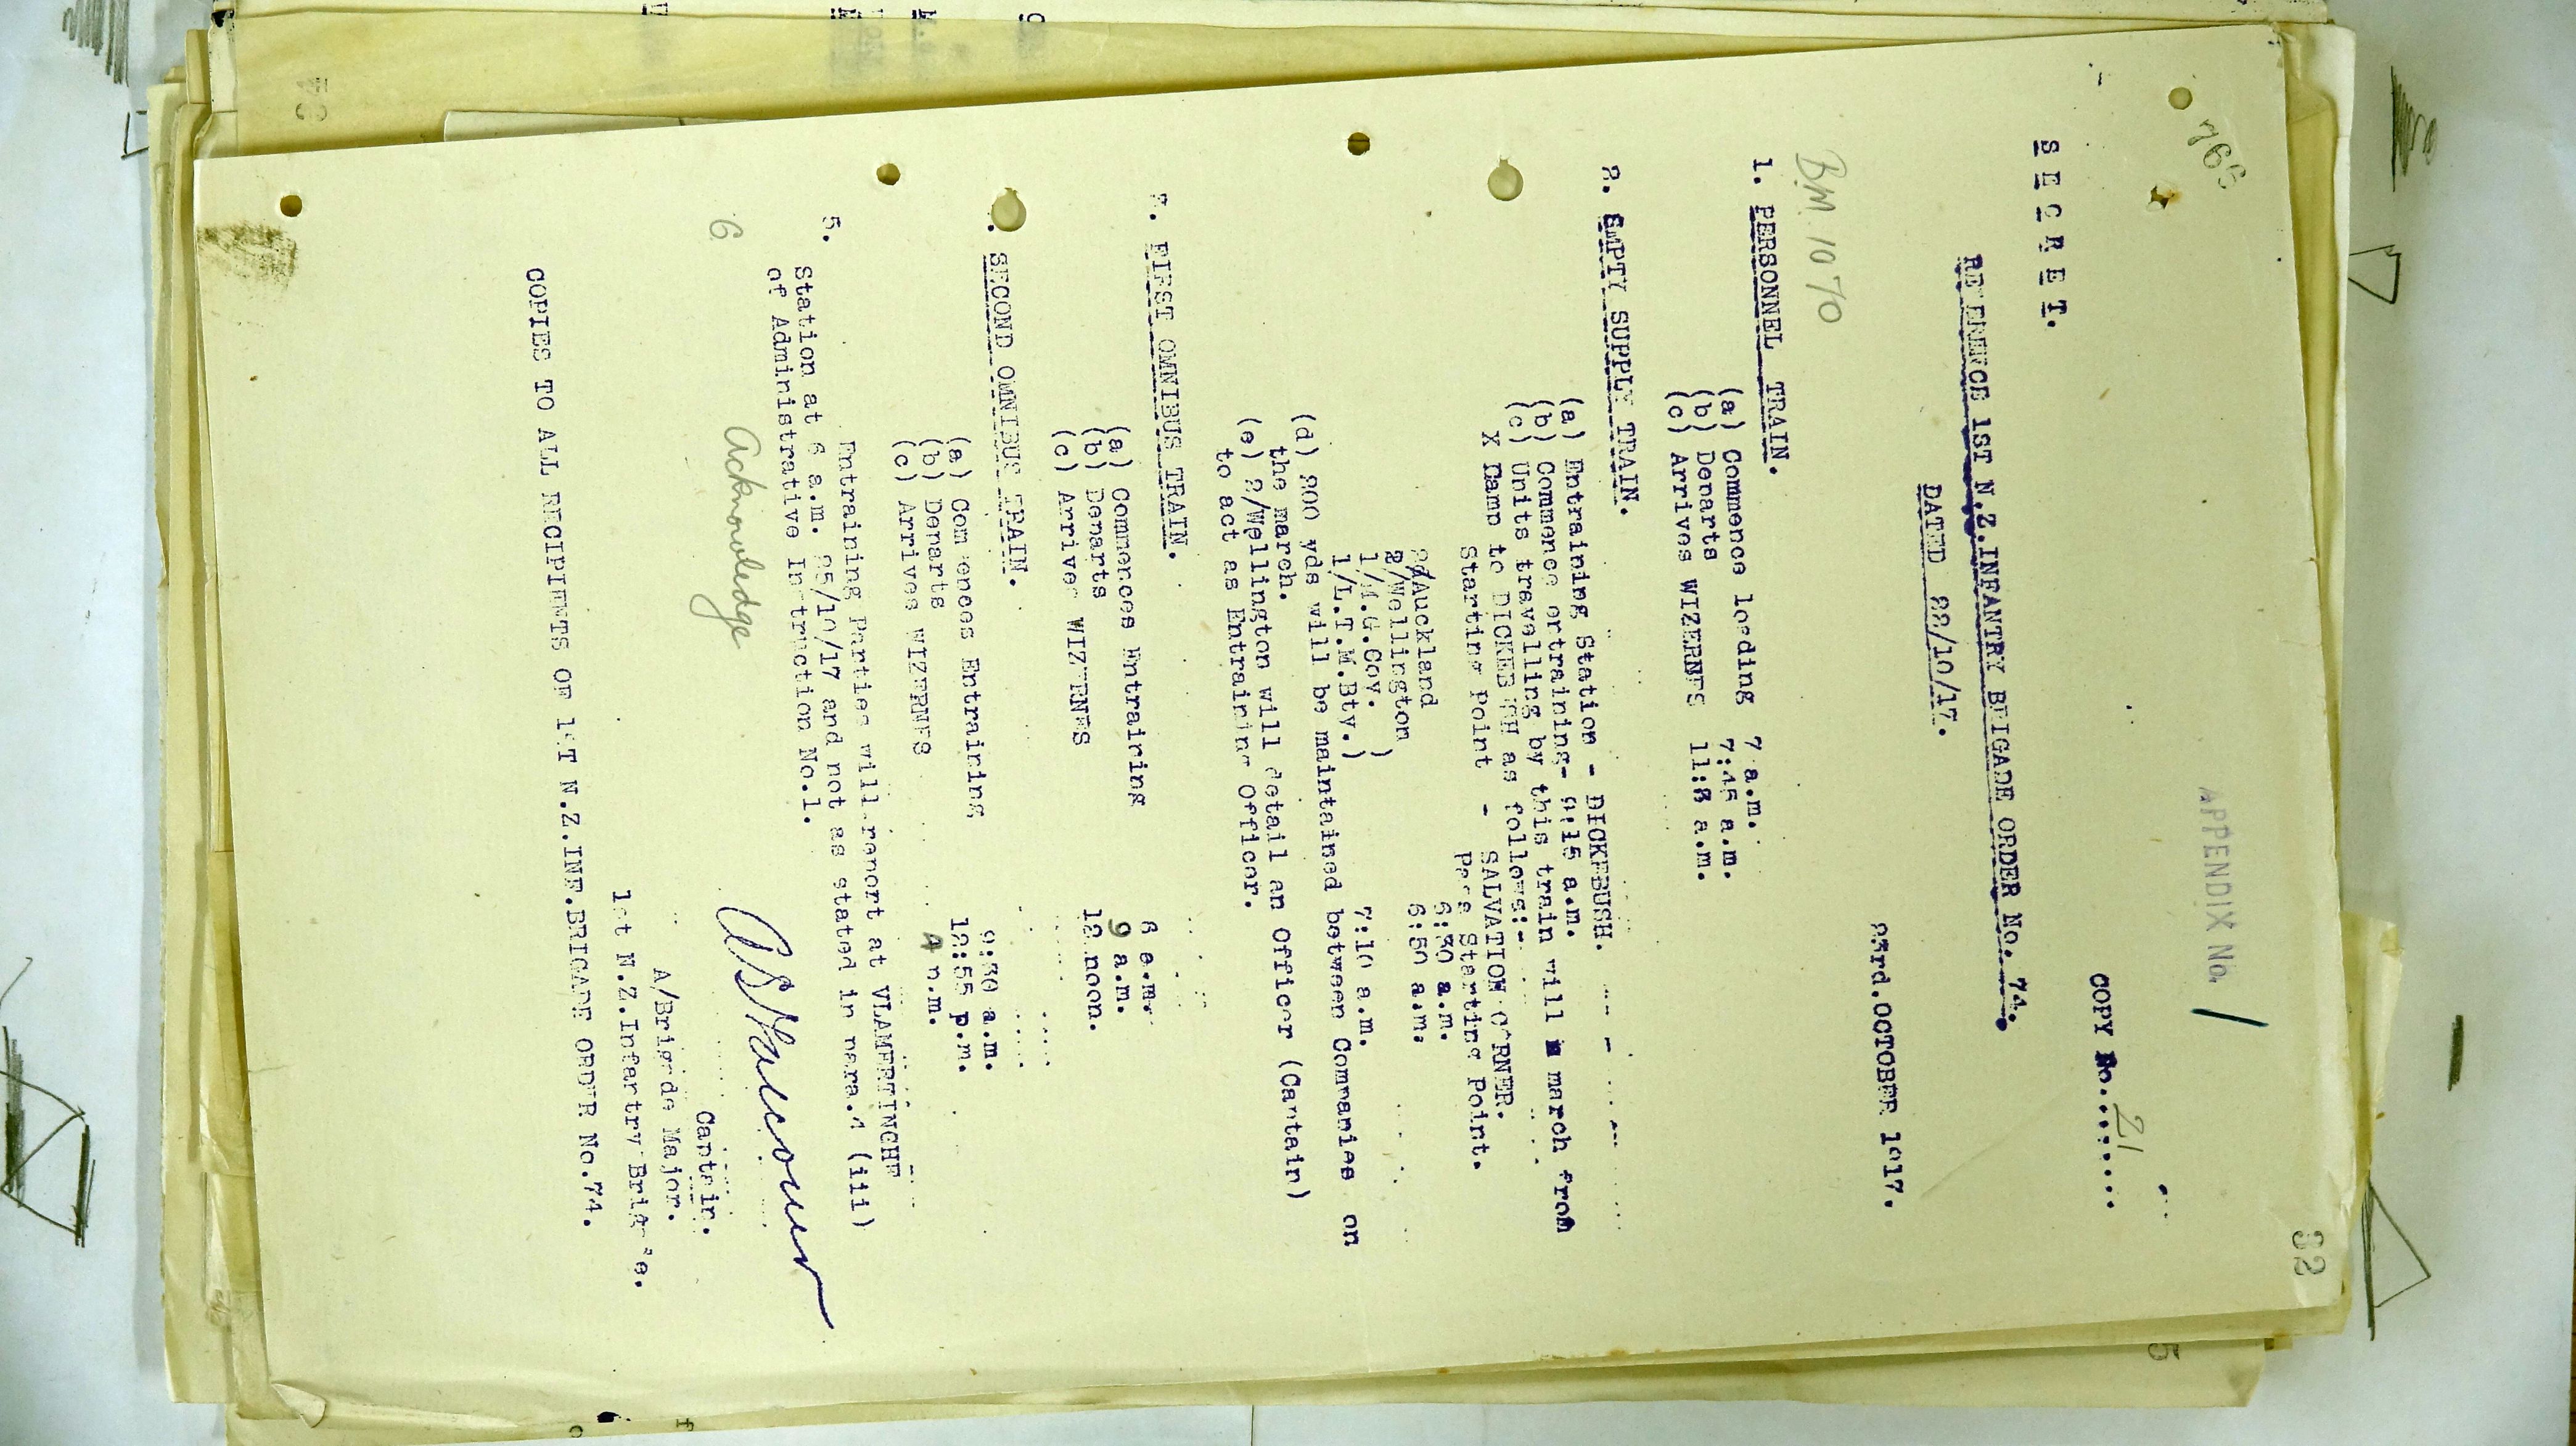 765
32
APPENDIX No. 1
COPY No. 21
S E C R E T.
REFERENCE 1ST N.Z.INFANTRY BRIGADE ORDER No. 74.
DATED 22/10/17.
23rd.OCTOBER 1917.
BM 1070
1. PERSONNEL TRAIN.
(a) Commence loading 7 a.m.
(b) Departs 7:45 a.m.
(c) Arrives WIZERNES 11:8 a.m.
2. EMPTY SUPPLY TRAIN.
(a) Entraining Station - DICKEBUSH.
(b) Commence entraining-
(c) Units travelling by this train will march from
X Camp to DICKEBUSH as follows:-
Starting Point - SALVATION CORNER.
Pass Starting Point.
2/Auckland 6:30 a.m.
2/Wellington 6:50 a.m.
1/M.G.Coy. )
1/L.T.M.Bty.) 7:10 a.m.
(d) 200 yds will be maintained between Companies on
the march.
(e) 2/Wellington will detail an Officer (Captain)
to act as Entraining Officer.
3. FIRST OMNIBUS TRAIN.
(a) Commences Entraining a.m.
(b) Departs 9 a.m.
(c) Arrives WIZERNES 12 noon.
. SECOND OMNIBUS TRAIN.
(a) Commences Entraining a.m.
(b) Departs 12:55 p.m.
(c) Arrives WIZERNES 4 p.m.
5. Entraining Parties will report at VLAMERTINGHE
Station at 6 a.m. 25/10/17 and not as stated in para.4 (iii)
of Administrative Instruction No.1.
6 Acknowledge
Captain.
A/Brigade Major.
1st N.Z.Infantry Brigade.
COPIES TO ALL RECIPIENTS OF 1ST N.Z.INF.BRIGADE ORDER No.74.